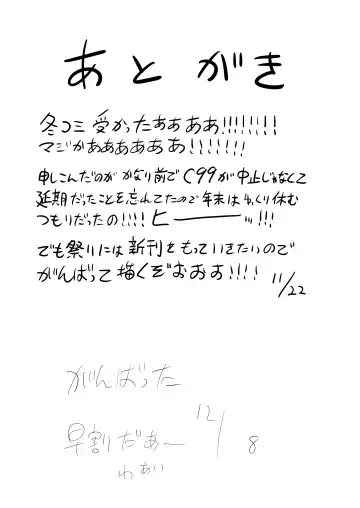 あとがき
冬コミ受かったぁぁぁぁ!!!!!!!!
マジかぁぁぁぁぁぁ!!!!!!!
申しこんだのがかなり前でC99が中止じゃなくて
延期だったことを忘れてたので年末はゆっくり休む
つもりだったの!!!! ヒーーー…!!!
でも祭りには新刊をもっていきたいので
がんばって描くぞおおお!!!! 11/22
がんばった
早割だぁ〜 12/8
わぁい